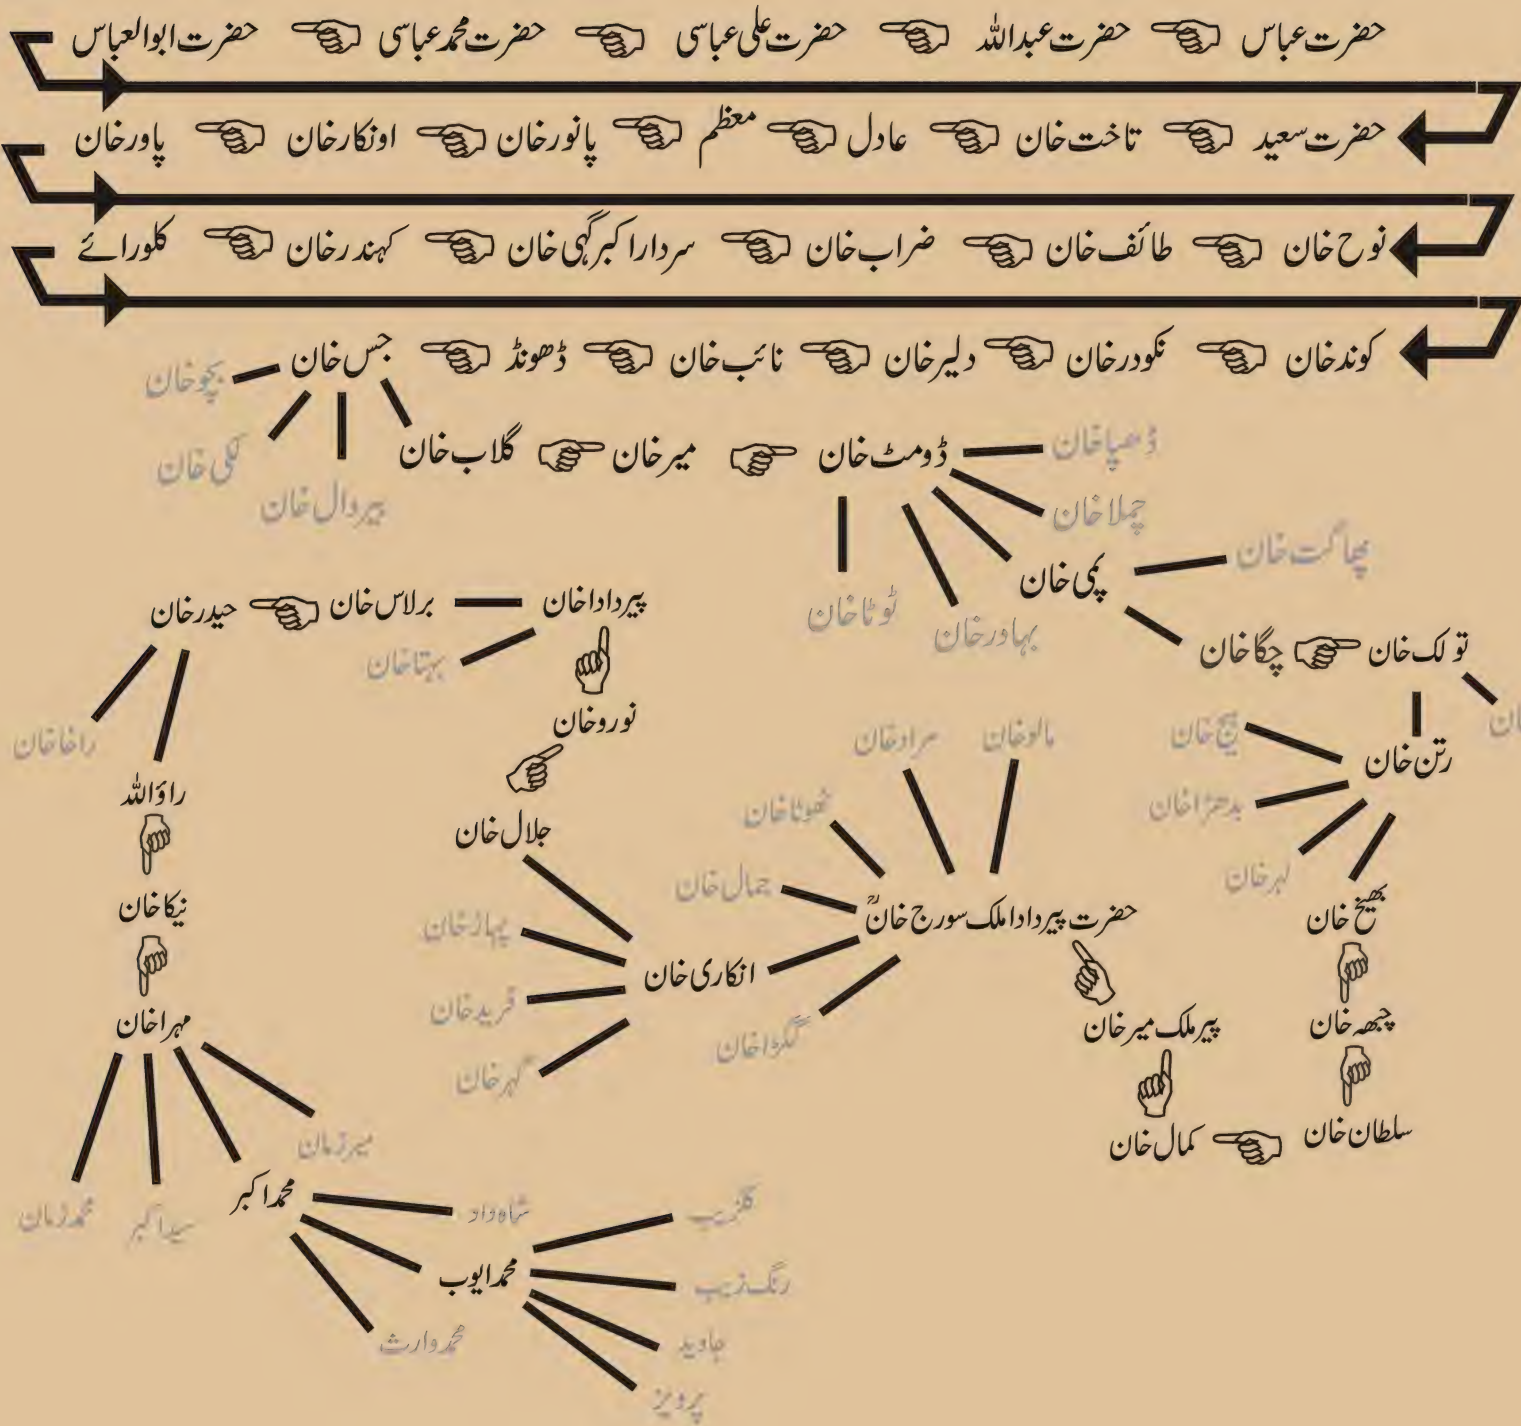 حضرت عباس حضرت عبداللہ حضرت علی عباسی حضرت محمد عباسی حضرت ابوالعباس
حضرت سعید تاخت خان عادل معظم پانور خان اونکار خان پاور خان
نوح خان طائف خان ضراب خان سردار اکبر گہی خان کہندر خان کلورائے
کوند خان نکودر خان دلیر خان نائب خان ڈھونڈ جس خان
بچو خان
کلی خان
پیر دال خان
گلاب خان میر خان ڈومٹ خان
ڈھپا خان
چملا خان
پمی خان
چھاگت خان
بہادر خان
ٹوٹا خان
چگا خان تولک خان
خان
رتن خان
ہیج خان
بدھڑا خان
لہر خان
بھیخ خان
چبھہ خان
سلطان خان
کمال خان
پیر ملک میر خان
حضرت پیر دادا ملک سورج خانؒ
مالو خان
مراد خان
ٹھوٹا خان
جمال خان
انکاری خان
گگڑا خان
جلال خان
پہاڑ خان
فرید خان
گہر خان
نورو خان
پیر دادا خان
بہتا خان
برلاس خان
حیدر خان
راخا خان
راؤ اللہ
نیکا خان
مہرا خان
میر زمان
محمد اکبر
سید اکبر
محمد زمان
شاہ داد
محمد ایوب
محمد وارث
گلزیب
رنگ زیب
جاوید
پرویز